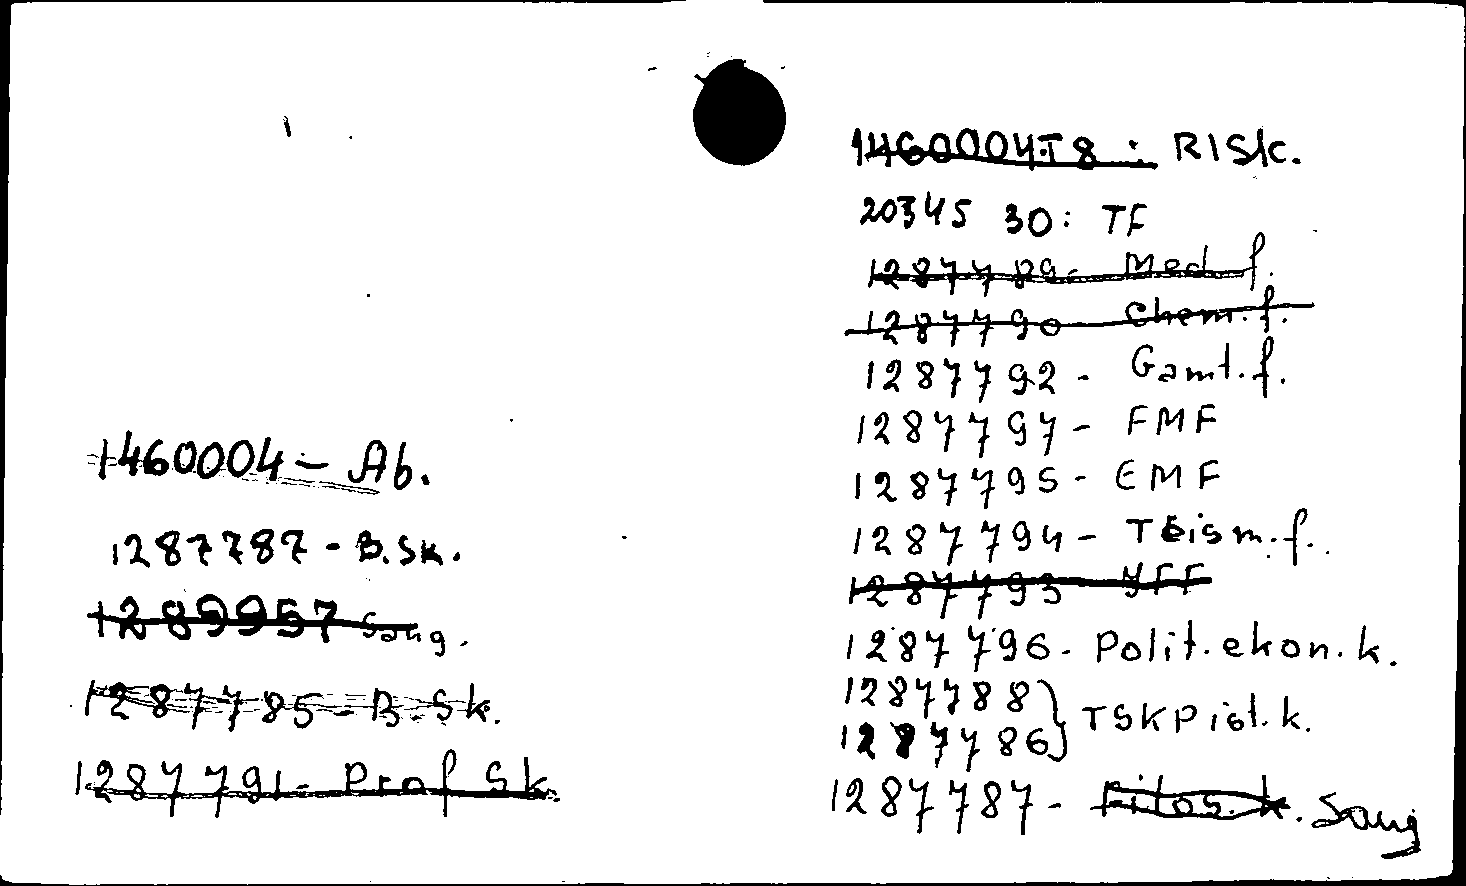 1460004 - Ab.
1287787 - B.Sk.
1289957 Saug.
1287785 - B.Sk.
1287791 - Prof Sk.
1460004T8 : RISk.
20345 30: TF
1287789 - Med f.
1287790 Chem. f.
1287792 - Gamt. f.
1287797 - FMF
1287795 - EMF
1287794 - Teism. f.
1287793 YFF
1287796 - Polit. ekon. k.
1287788 } TSKP ist. k.
1287786
1287787 - Filos. k. Saug